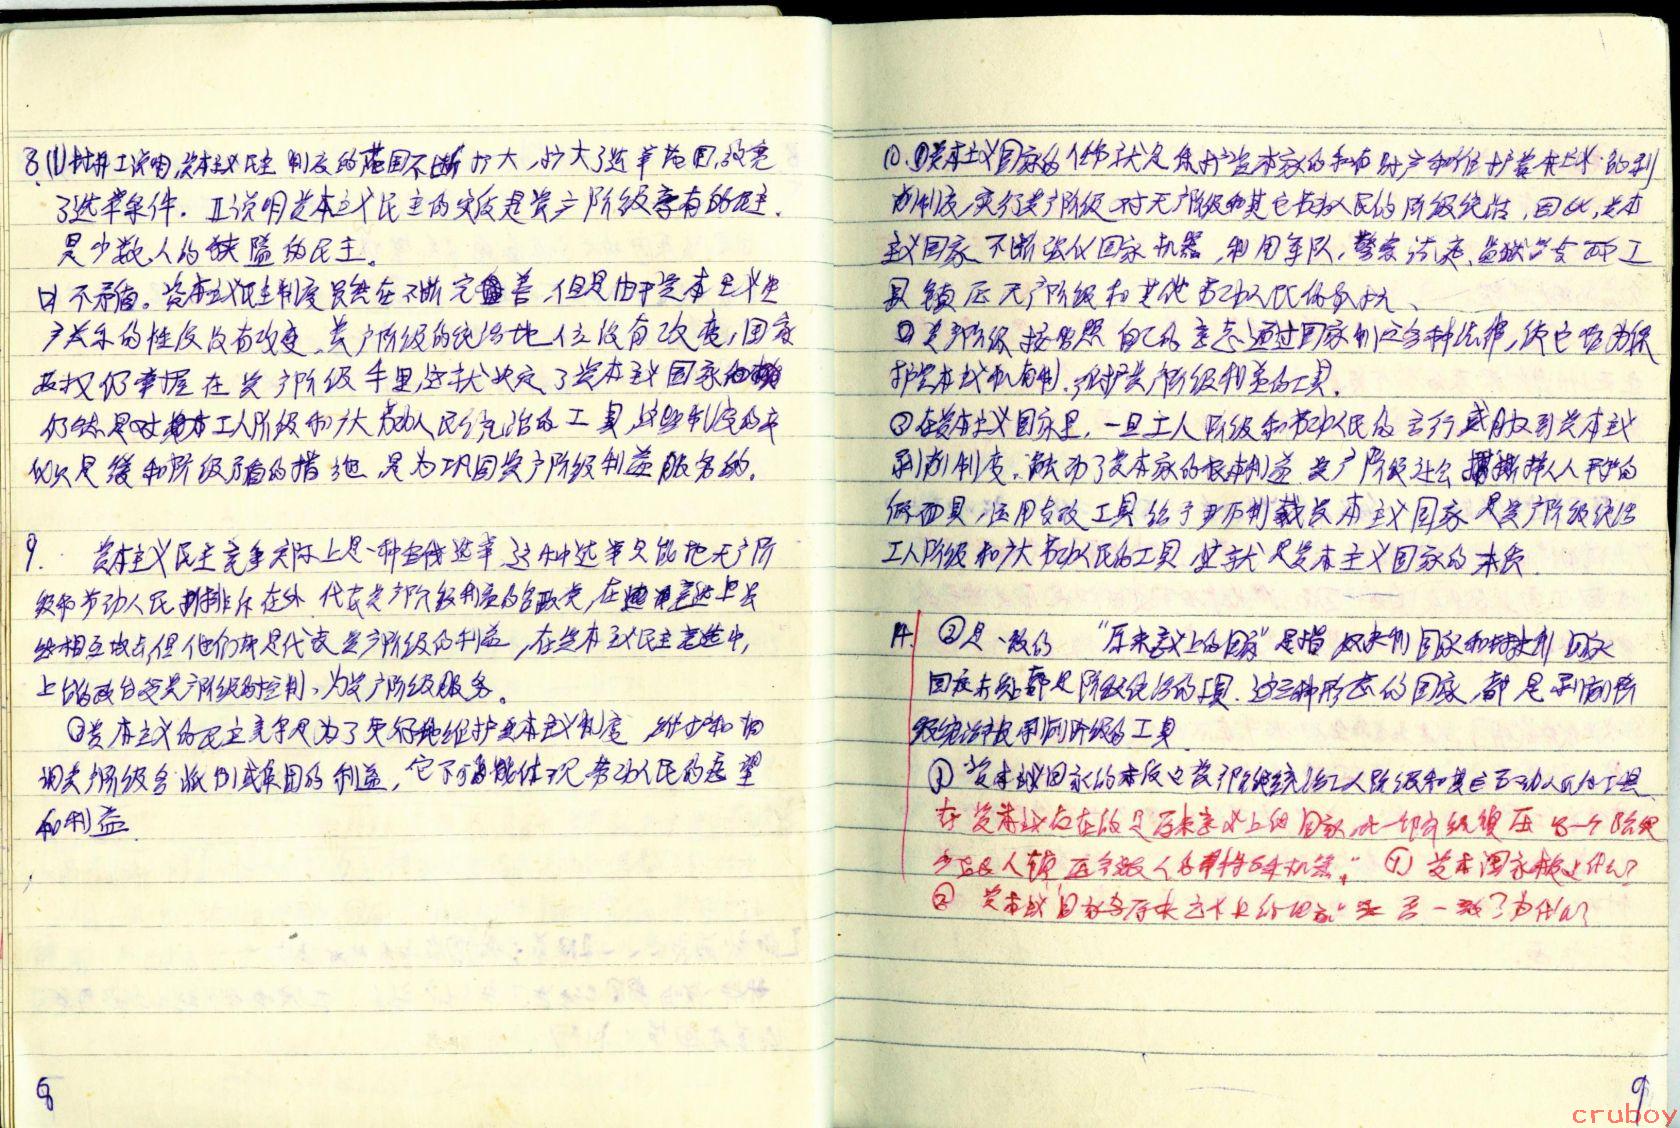 8.(1)材料I说明,资本主义民主制度的范围不断扩大,扩大了选举范围,放宽
了选举条件。II说明资本主义民主的实质是资产阶级享有的民主.
是少数人的狭隘的民主。
(2)不矛盾。资本主义民主制度虽然在不断完善,但是由于资本主义生
产关系的性质没有改变,资产阶级的统治地位没有改变,国家
政权仍掌握在资产阶级手里,这就决定了资本主义国家
仍然是对工人阶级和广大劳动人民统治的工具,这些制度的
是缓和阶级矛盾的措施,是为巩固资产阶级利益服务的。
9. 资本主义民主竞争实际上是一种金钱选举,这种选举只能把无产阶
级和劳动人民排斥在外,代表资产阶级利益的各政党,在竞选上虽
然相互攻击,但他们都是代表资产阶级的利益,在资本主义民主竞选中,
上台的政台受资产阶级的控制,为资产阶级服务。
②资本主义的民主竞争是为了更好地维护资本主义制度,维护和协
调资产阶级各派别或集团的利益,它不可能体现劳动人民的愿望
和利益.
8
10.①资本主义国家的任务就是保护资本家的私有财产和维护资本主义的剥
削制度,实行资产阶级对无产阶级和其它劳动人民的阶级统治,因此,资本
主义国家不断强化国家机器,利用军队,警察,法庭、监狱等专政工
具镇压无产阶级和其他劳动人民的反抗、
②资产阶级按照自己的意志通过国家制定各种法律,使它成为保
护资本主义私有制.维护资产阶级利益的工具.
③在资本主义国家里,一旦工人阶级和劳动人民的言行威胁到资本主义
剥削制度,触动了资本家的根本利益,资产阶级就会撕掉人人平等的
假面具,运用专政工具给予严厉制裁.资本主义国家是资产阶级统治
工人阶级和广大劳动人民的工具.这就是资本主义国家的本质.
14. ②是一致的 "原来意义上的国家"是指奴隶制国家和封建制国家
国家本质都是阶级统治的工具.这三种形态的国家,都是剥削阶
级统治被剥削阶级的工具.
①资本主义国家的本质是资产阶级统治工人阶级和其它劳动人民的工具
在资本主义存在的是原来意义上的国家,即一个阶级镇压另一个阶级
少数人镇压多数人的特殊机器。" ①资本主义国家本质是什么?
②资本主义国家与原来意义上的国家"是否一致?为什么?
9
cruboy